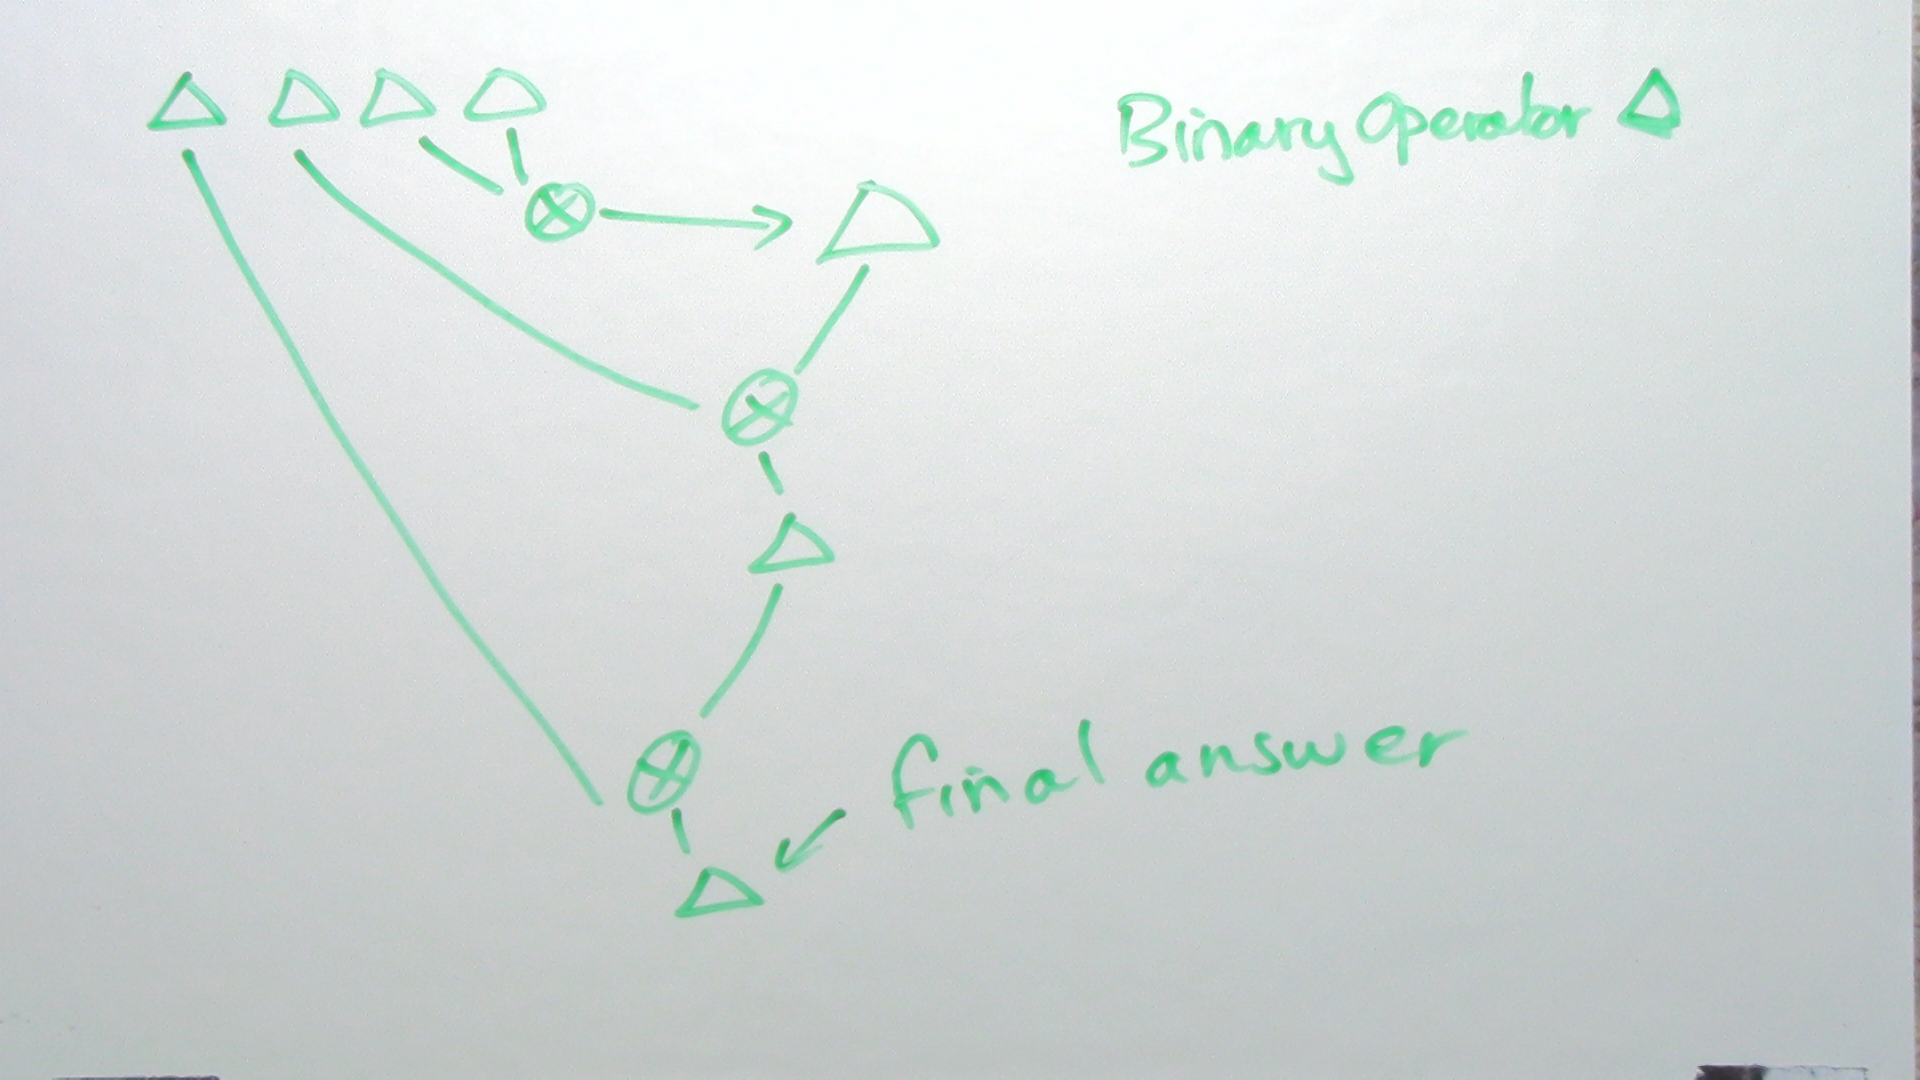 Binary Operator △
final answer